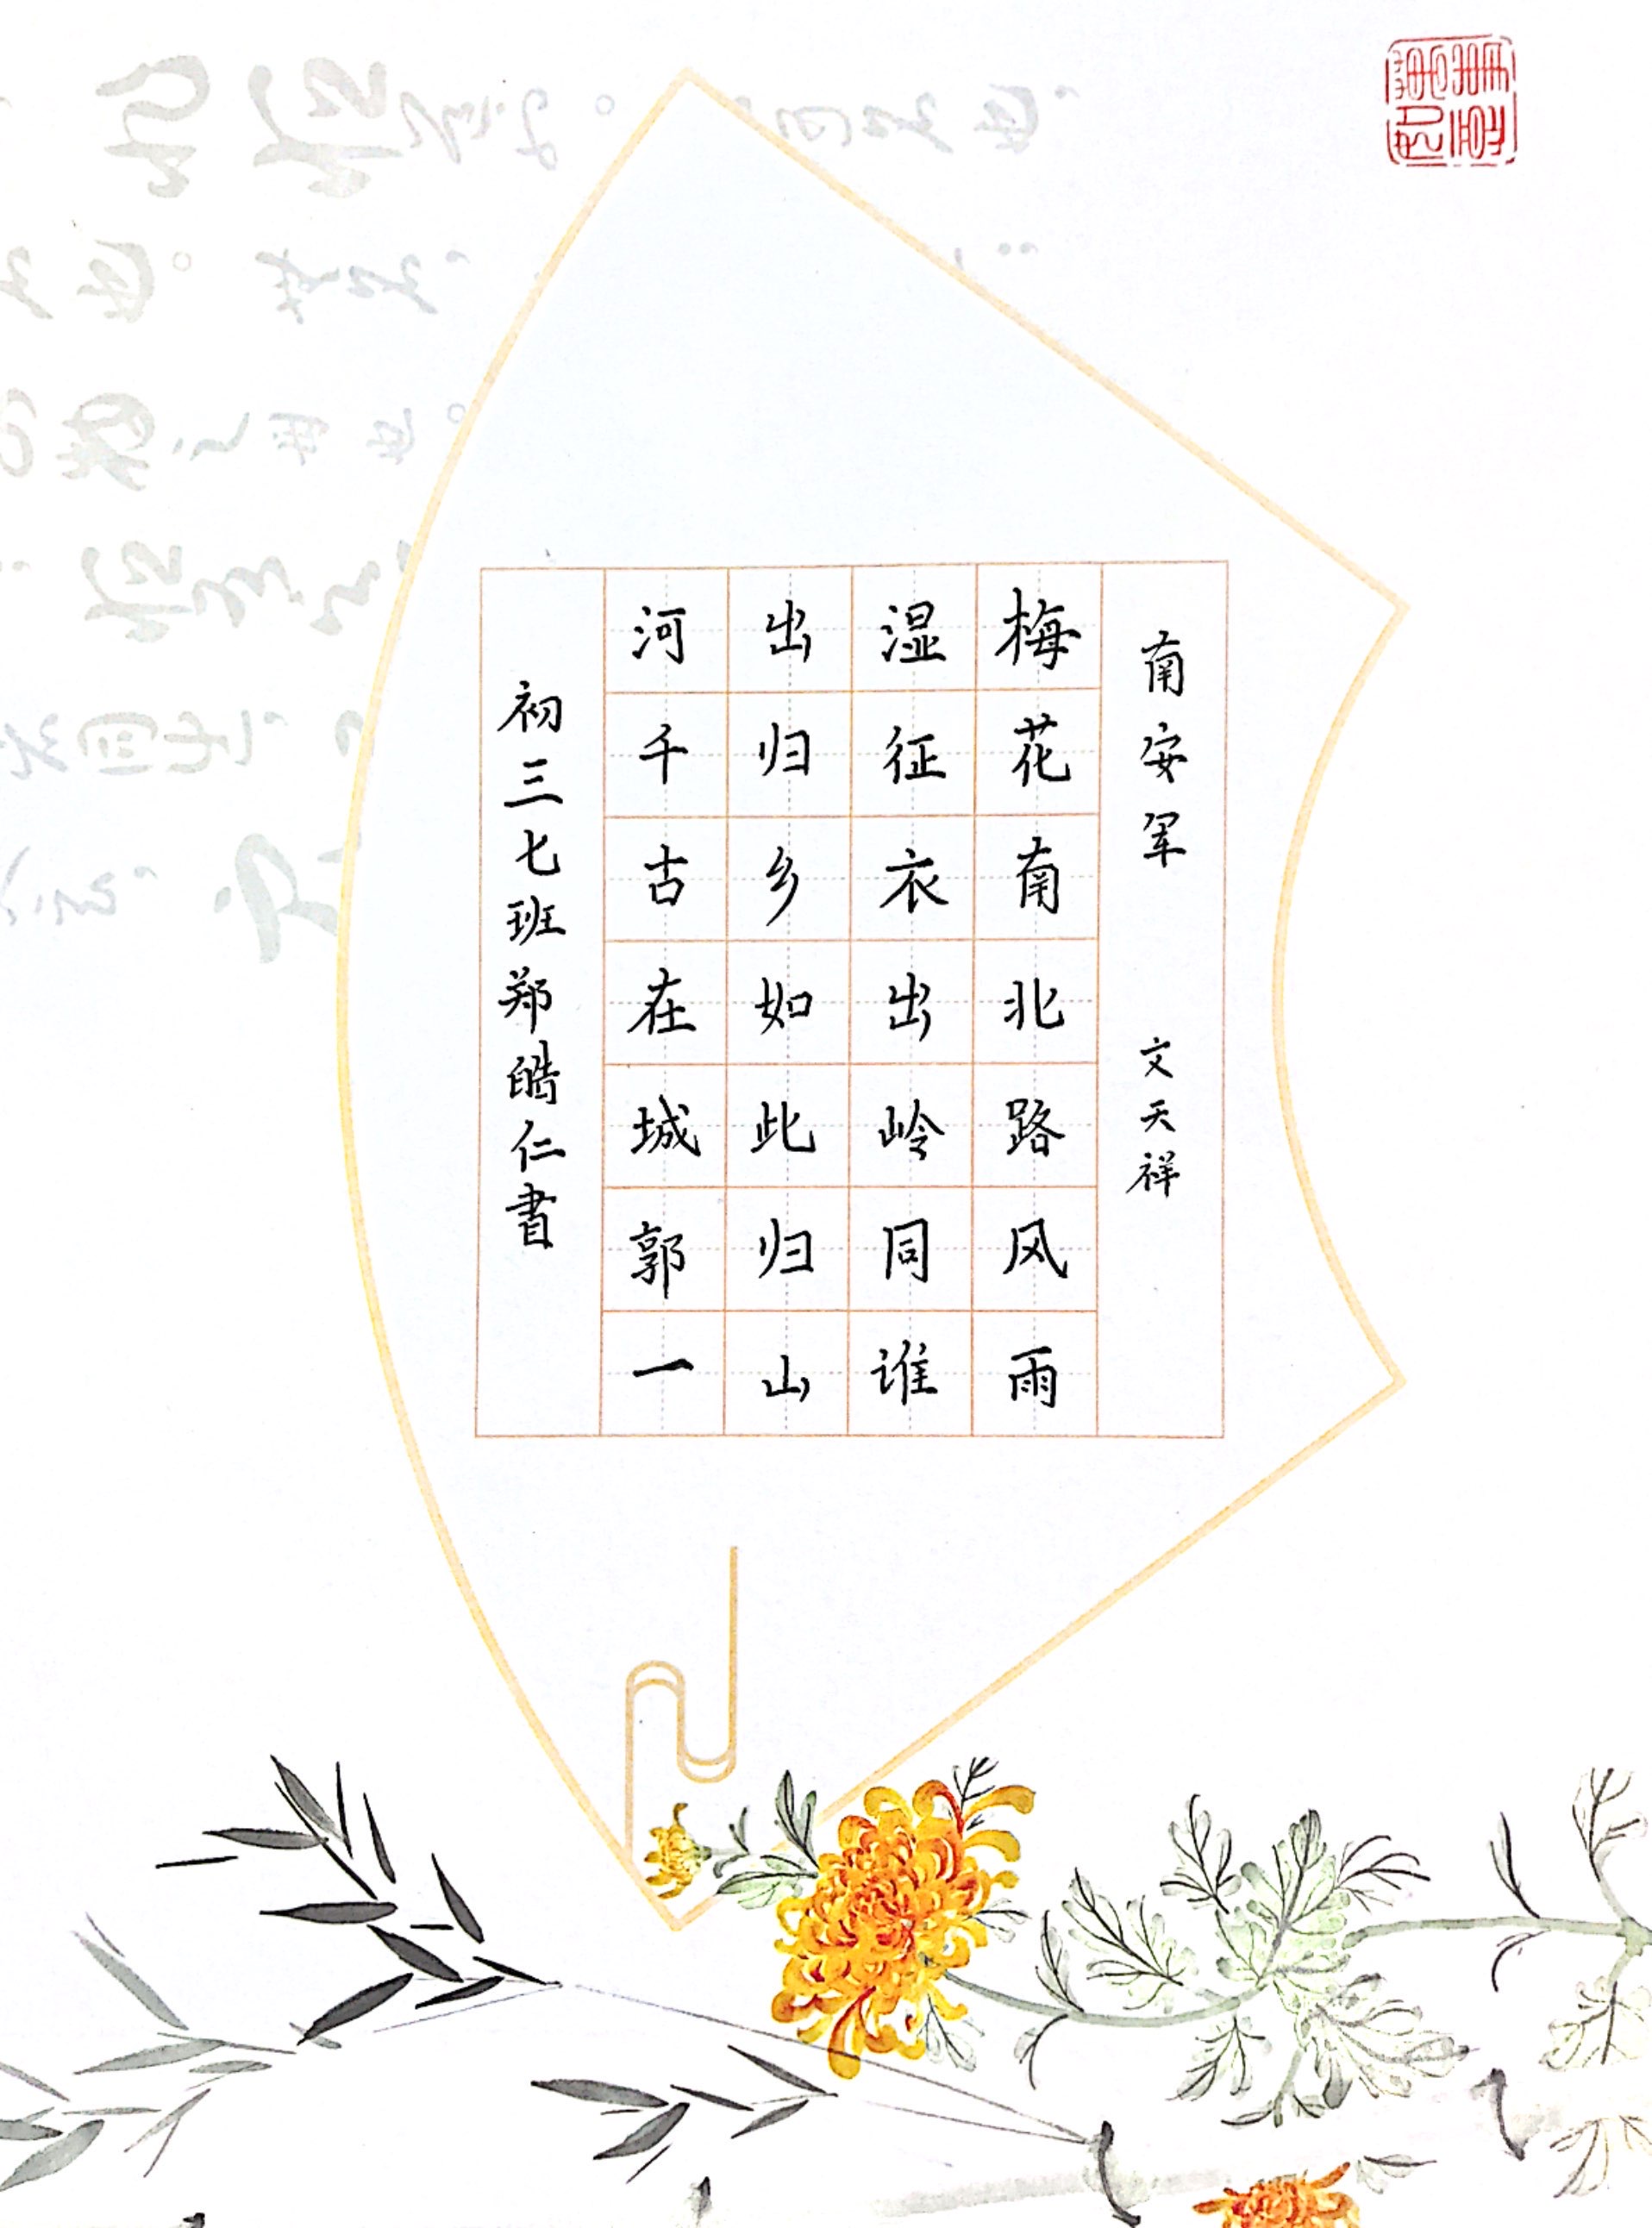 南安军 文天祥
梅花南北路风雨
湿征衣出岭同谁
出归乡如此归山
河千古在城郭一
初三七班郑皓仁書